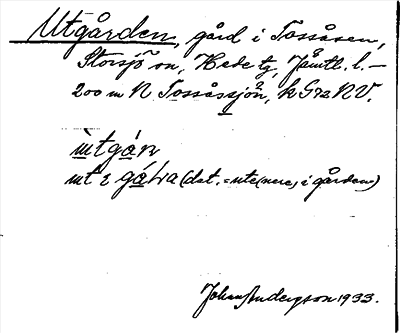 Utgården, gård i Tossåsen,
Storsjö sn, Hede tg, Jämtl. l. –
200 m N Tossåssjön, k Gra NV.
ùtgán
ut i gáʹa (dat. = ute (nere) i gården)
Johan Anderson 1933.